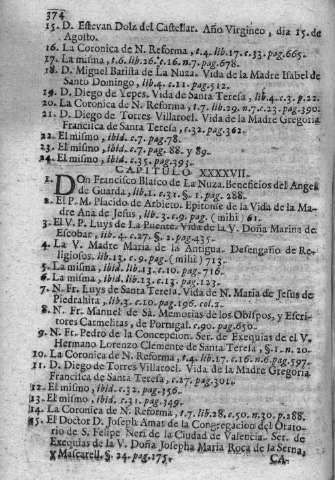 374
15. D. Estevan Dolz del Castellar. Año Virgineo, dia 15. de
Agosto.
16. La Coronica de N. Reforma, t.4. lib.17. c.33. pag.665.
17. La misma, t.6. lib.26. c.16. n.7. pag.678.
18. D. Miguel Batista de La Nuza. Vida de la Madre Isabel de
Santo Domingo, lib.4. c.11. pag.512.
19. D. Diego de Yepes. Vida de Santa Teresa, lib.4. c.3. p.22.
20. La Coronica de N. Reforma, t.7. lib.29. n.7. c.23. pag.390.
21. D. Diego de Torres Villaroel. Vida de la Madre Gregoria
Francisca de Santa Teresa, c.32. pag.362.
22. El mismo, ibid. c.7. pag.78.
23. El mismo, ibid. c.7. pag. 88. y 89.
24. El mismo, ibid. c.35. pag.393.
CAPITULO XXXXVII.
1. DOn Francisco Blasco de La Nuza. Beneficios del Angel
de Guarda, lib.1. c.31. §. 1. pag. 288.
2. El P. M. Placido de Arbieto. Epitome de la Vida de la Ma-
dre Ana de Jesus, lib.3. c.9. pag. (mihi) 61.
3. El V. P. Luys de La Puente. Vida de la V. Doña Marina de
Escobar, lib.4. c.27. §.2. pag.435.
4. La V. Madre Maria de la Antigua. Desengaño de Re-
ligiosos. lib.13. c.9. pag. (mihi) 713.
5. La misma, ibid. lib.13. c.10. pag.716.
6. La misma, ibid. lib.13. c.13. pag.123.
7. N. Fr. Luys de Santa Teresa. Vida de N. Maria de Jesus de
Piedrahita, lib.2. c.10. pag.196. col.2.
8. N. Fr. Manuel de Sà. Memorias de los Obispos, y Escri-
tores Carmelitas, de Portugal. c.90. pag.650.
9. N. Fr. Pedro de la Concepcion. Ser. de Exequias de el V.
Hermano Lorenzo Clemente de Santa Teresa, §.1. n.20.
10. La Coronica de N. Reforma, t.4. lib.17. c.16. n.6. pag.597.
11. D. Diego de Torres Villaroel. Vida de la Madre Gregoria
Francisca de Santa Teresa, c.27. pag.301.
12. El mismo, ibid. c.32. pag.356.
13. El mismo, ibid. c.31. pag.349.
14. La Coronica de N. Reforma, t.7. lib.28. c.50. n.30. p.288.
15. El Doctor D. Joseph Amat de la Congregacion del Orato-
rio de S. Felipe Neri de la Ciudad de Valencia. Ser. de
Exequias de la V. Doña Josepha Maria Roca de la Serna,
y Mascarell, §. 24. pag.175.
CA-